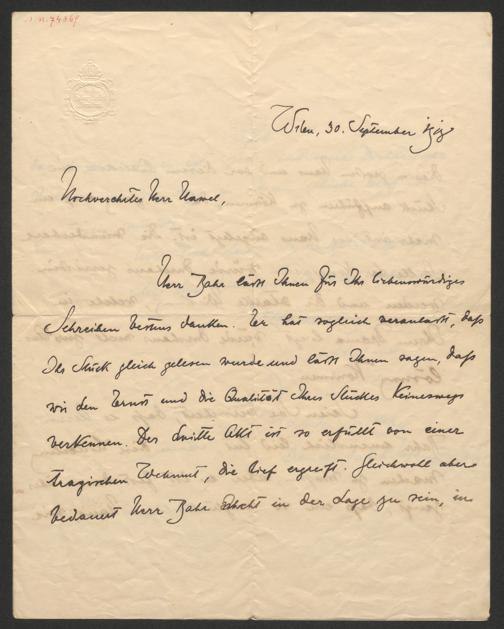 I.N. 74869
Wien, 30. September
Hochverehrter Herr Hawel,
Herr Bahr läßt Ihnen für Ihr liebenswürdiges
Schreiben bestens danken. Er hat sogleich veranlaßt, daß
Ihr Stück gleich gelesen wurde und läßt Ihnen sagen, daß
wir den Ernst und die Qualität Ihres Stückes keineswegs
verkennen. Der dritte Akt ist so erfüllt von einer
tragischen Wehmut, die tief ergreift. Gleichwohl aber
bedauert Herr Bahr nicht in der Lage zu sein, in